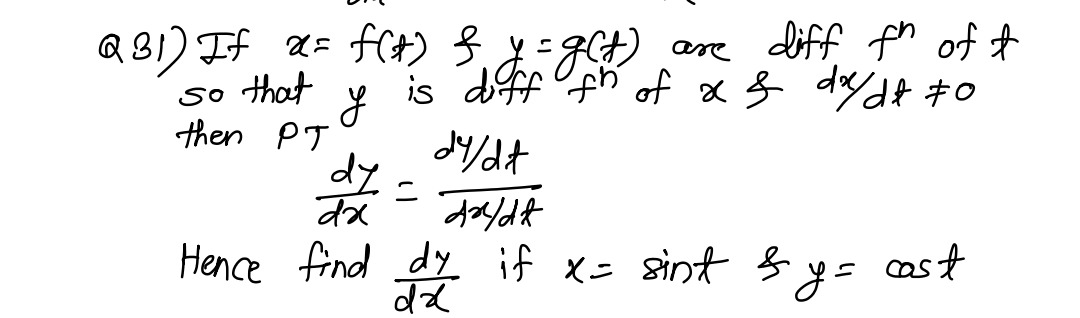 Q 31) If x = f(t) & y = g(t) are diff fⁿ of t
so that y is diff fⁿ of x & dx/dt ≠ 0
then PT
dy/dx = dy/dt / dx/dt
Hence find dy/dx if x = sint & y = cost